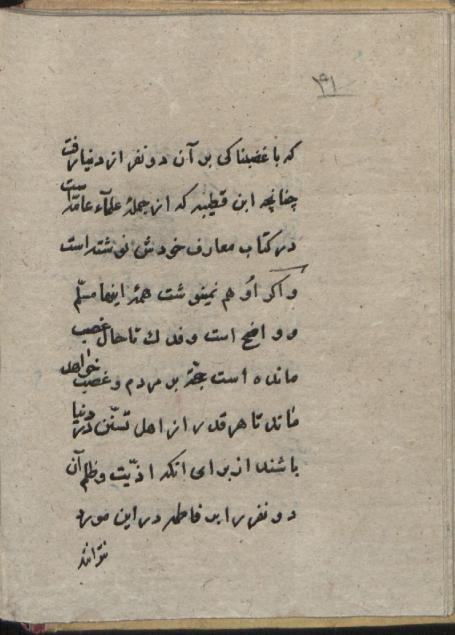 ۴۱
که با غضبناکی بر آن دو نفر از دنیا رفت
چنانچه ابن قطیبه که از جملهٔ علمآء عامّه است
در کتاب معارف خودش نوشته است
و اگر او هم نمینوشت همهٔ اینها مسلّم
و واضح است و فدك تا حال غصب
مانده است حجّة بر مردم و غصب خواهد
ماند تا هر قدر از اهل تسنّن در دنیا
باشند از برای انکه اذیّت و ظلم آن
دو نفر را بر فاطمه در این مورد
نتوانند